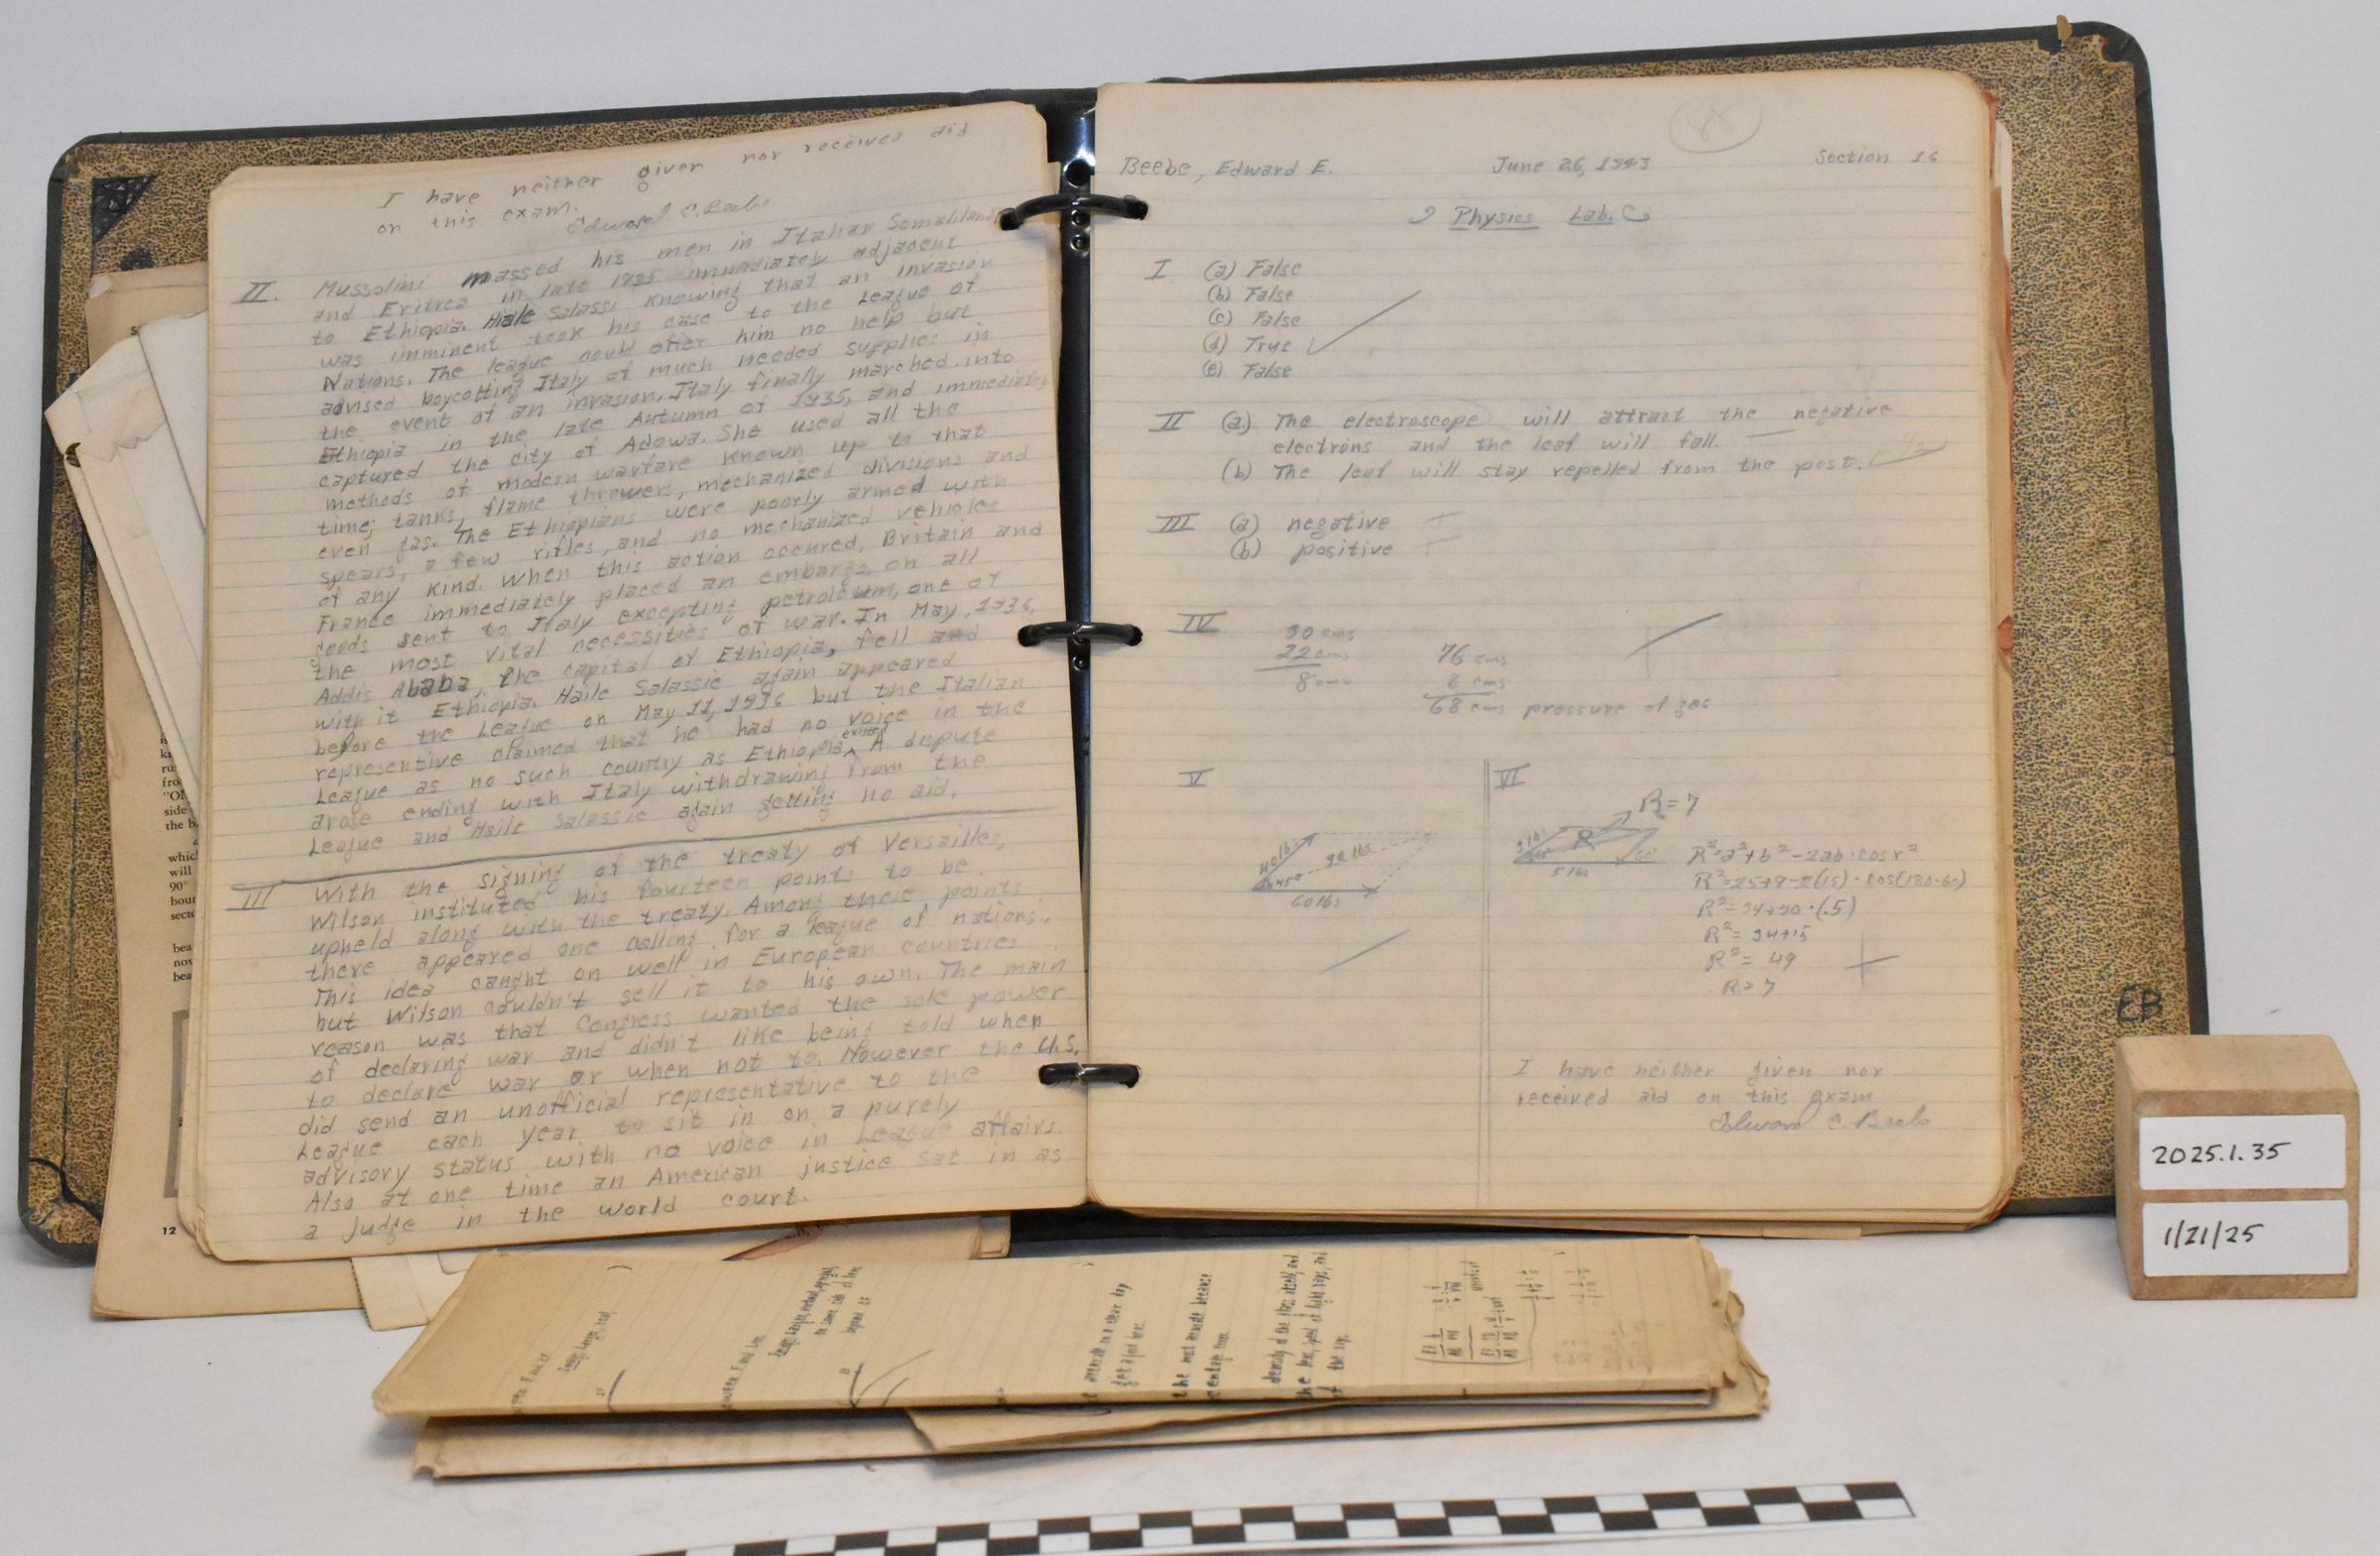 I have neither given nor received aid
on this exam.
Edward E. Beebe
II. Mussolini massed his men in Italian Somaliland
and Eritrea in late 1935 immediately adjacent
to Ethiopia. Hiale Salassi knowing that an invasion
was imminent took his case to the League of
Nations. The league could offer him no help but
advised boycotting Italy of much needed supplies in
the event of an invasion. Italy finally marched into
Ethiopia in the late Autumn of 1935, and immediately
captured the city of Adowa. She used all the
methods of modern warfare known up to that
time; tanks, flame throwers, mechanized divisions and
even gas. The Ethiopians were poorly armed with
spears, a few rifles, and no mechanized vehicles
of any kind. When this action occured, Britain and
France immediately placed an embargo on all
goods sent to Italy excepting petroleum, one of
the most vital necessities of war. In May, 1936,
Addis Ababa, the capital of Ethiopia, fell and
with it Ethiopia. Haile Salassie again appeared
before the League on May 11, 1936 but the Italian
representive claimed that he had no voice in the
League as no such country as Ethiopia existed. A dispute
arose ending with Italy withdrawing from the
League and Haile Salassie again getting no aid.
III With the signing of the treaty of Versailles,
Wilson instituted his fourteen points to be
upheld along with the treaty. Among these points
there appeared one calling for a league of nations.
This idea caught on well in European countries
but Wilson couldn't sell it to his own. The main
reason was that Congress wanted the sole power
of declaring war and didn't like being told when
to declare war or when not to. However the U.S.
did send an unofficial representative to the
League each year to sit in on a purely
advisory status with no voice in League affairs.
Also at one time an American justice sat in as
a judge in the world court.
12
Beebe, Edward E. June 26, 1943 Section 16
Physics Lab.
I (a) False
(b) False
(c) False
(d) True
(e) False
II (a) The electroscope will attract the negative
electrons and the leaf will fall.
(b) The leaf will stay repelled from the post.
III (a) negative
(b) positive
IV
30 cms
22 cms
8 cms
76 cms
8 cms
68 cms pressure of gas
V
40 lbs
90 lbs
45°
60 lbs
VI
R=7
3 lbs
R
60°
5 lbs
R²=a²+b²-2ab·cos r²
R²=25+9-2(15)·cos(180-60)
R²=34+30·(.5)
R²=34+15
R²=49
R=7
I have neither given nor
received aid on this exam
Edward E. Beebe
EB
2025.1.35
1/21/25